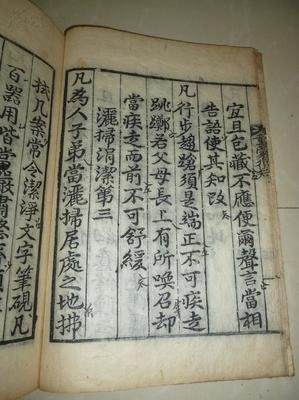 宜且包藏不應便爾聲言當相
告語使其知改
凡行步趨蹌須是端正不可疾走
跳躑若父母長上有所喚召却
當疾走而前不可舒緩
灑掃涓潔第三
凡為人子弟當灑掃居處之地拂
拭几案常令潔淨文字筆硯凡
百器用皆當嚴肅整齊